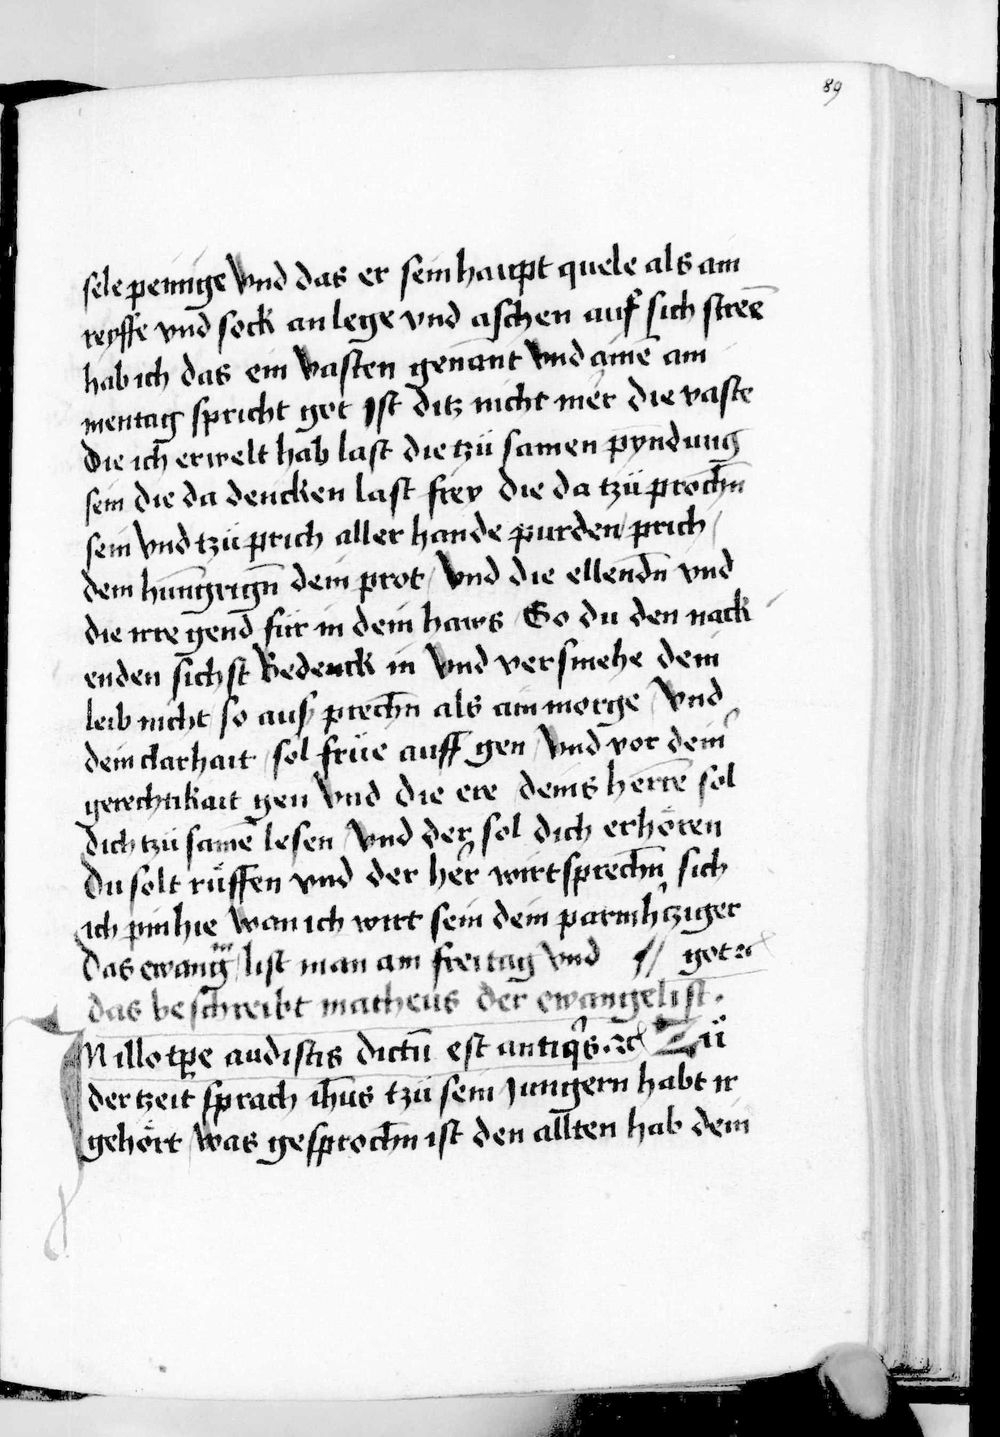 89
sele peinige Vnd das er sein haupt quele als ain
reyffe vnd sock an lege vnd aschen auf sich streẽ
hab ich das ein vasten genant vnd ainẽ am
mentag spricht got Ist ditz nicht mer die vaste
die ich erwelt hab last die tzü samen pyndung
sein die da dencken last frey die da tzü prochñ
sein Vnd tzü prich aller hande purden / prich /
dem hungrigñ dein prot / Vnd die ellendñ vnd
die irre gend für in dein haws / So du den nack
enden sichst Bedenck in Vnd versmehe dein
leib nicht / so auß prechñ als ain morge / Vnd
dein clarhait / sol früe auff gen / Vnd vor deinʼ
gerechtikait gen Vnd die ere / deins herrẽ sol
dich tzü samẽ lesen / Vnd der sol dich erhören
Du solt rüffen vnd der herʼ wirt sprechñ sich
ich pin hie wan ich wirt sein dein parmhʼtziger
das ewang̃ / list man am freitag vnd // got ꝛc
das beschreibt matheus der ewangelist .
IN illo tp̃e audistis dictũ est antiqʼs . ꝛc Zü
der tzeit sprach ih̃us tzü sein Jungern habt ir
gehört / Was gesprochñ ist den allten hab dein